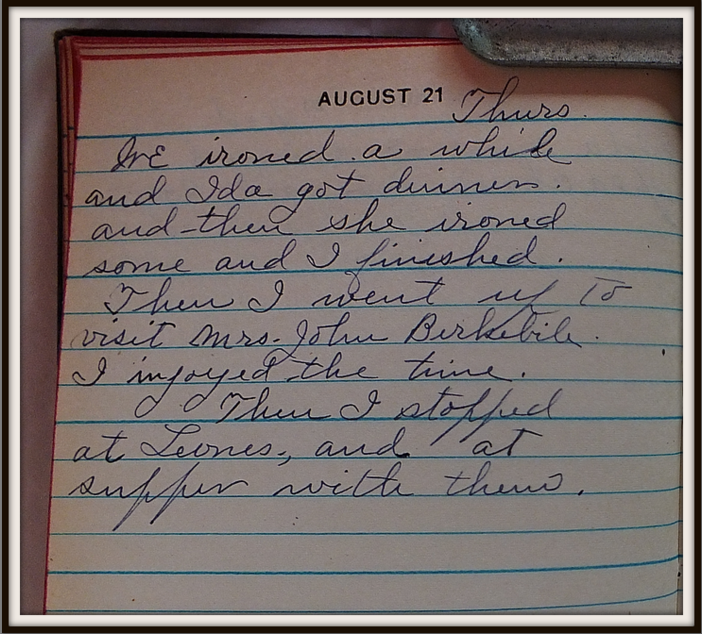 AUGUST 21 Thurs.
WE ironed a while
and Ida got dinner.
and then she ironed
some and I finished.
Then I went up To
visit Mrs. John Berkebile.
I injoyed the time.
Then I stopped
at Leones, and at
supper with them.